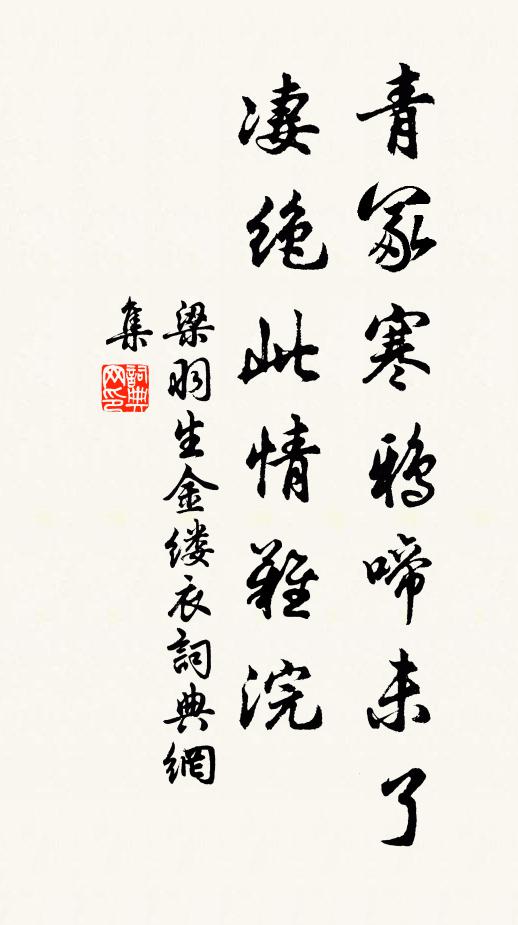 青冢寒鴉啼未了
凄绝此情難浣
梁羽生金缕衣詞典網
集
詞典
网印